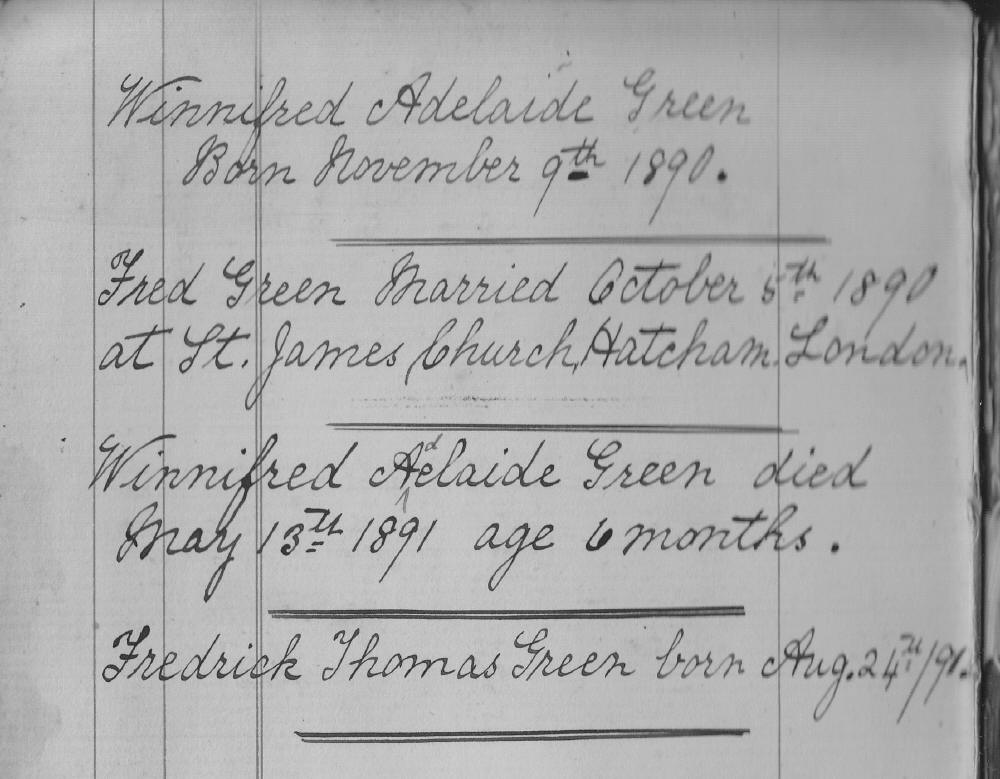 Winnifred Adelaide Green
Born November 9th 1890.
Fred Green Married October 5th 1890
at St. James Church, Hatcham. London.
Winnifred Adelaide Green died
May 13th 1891 age 6 months.
Fredrick Thomas Green born Aug. 24th/91.